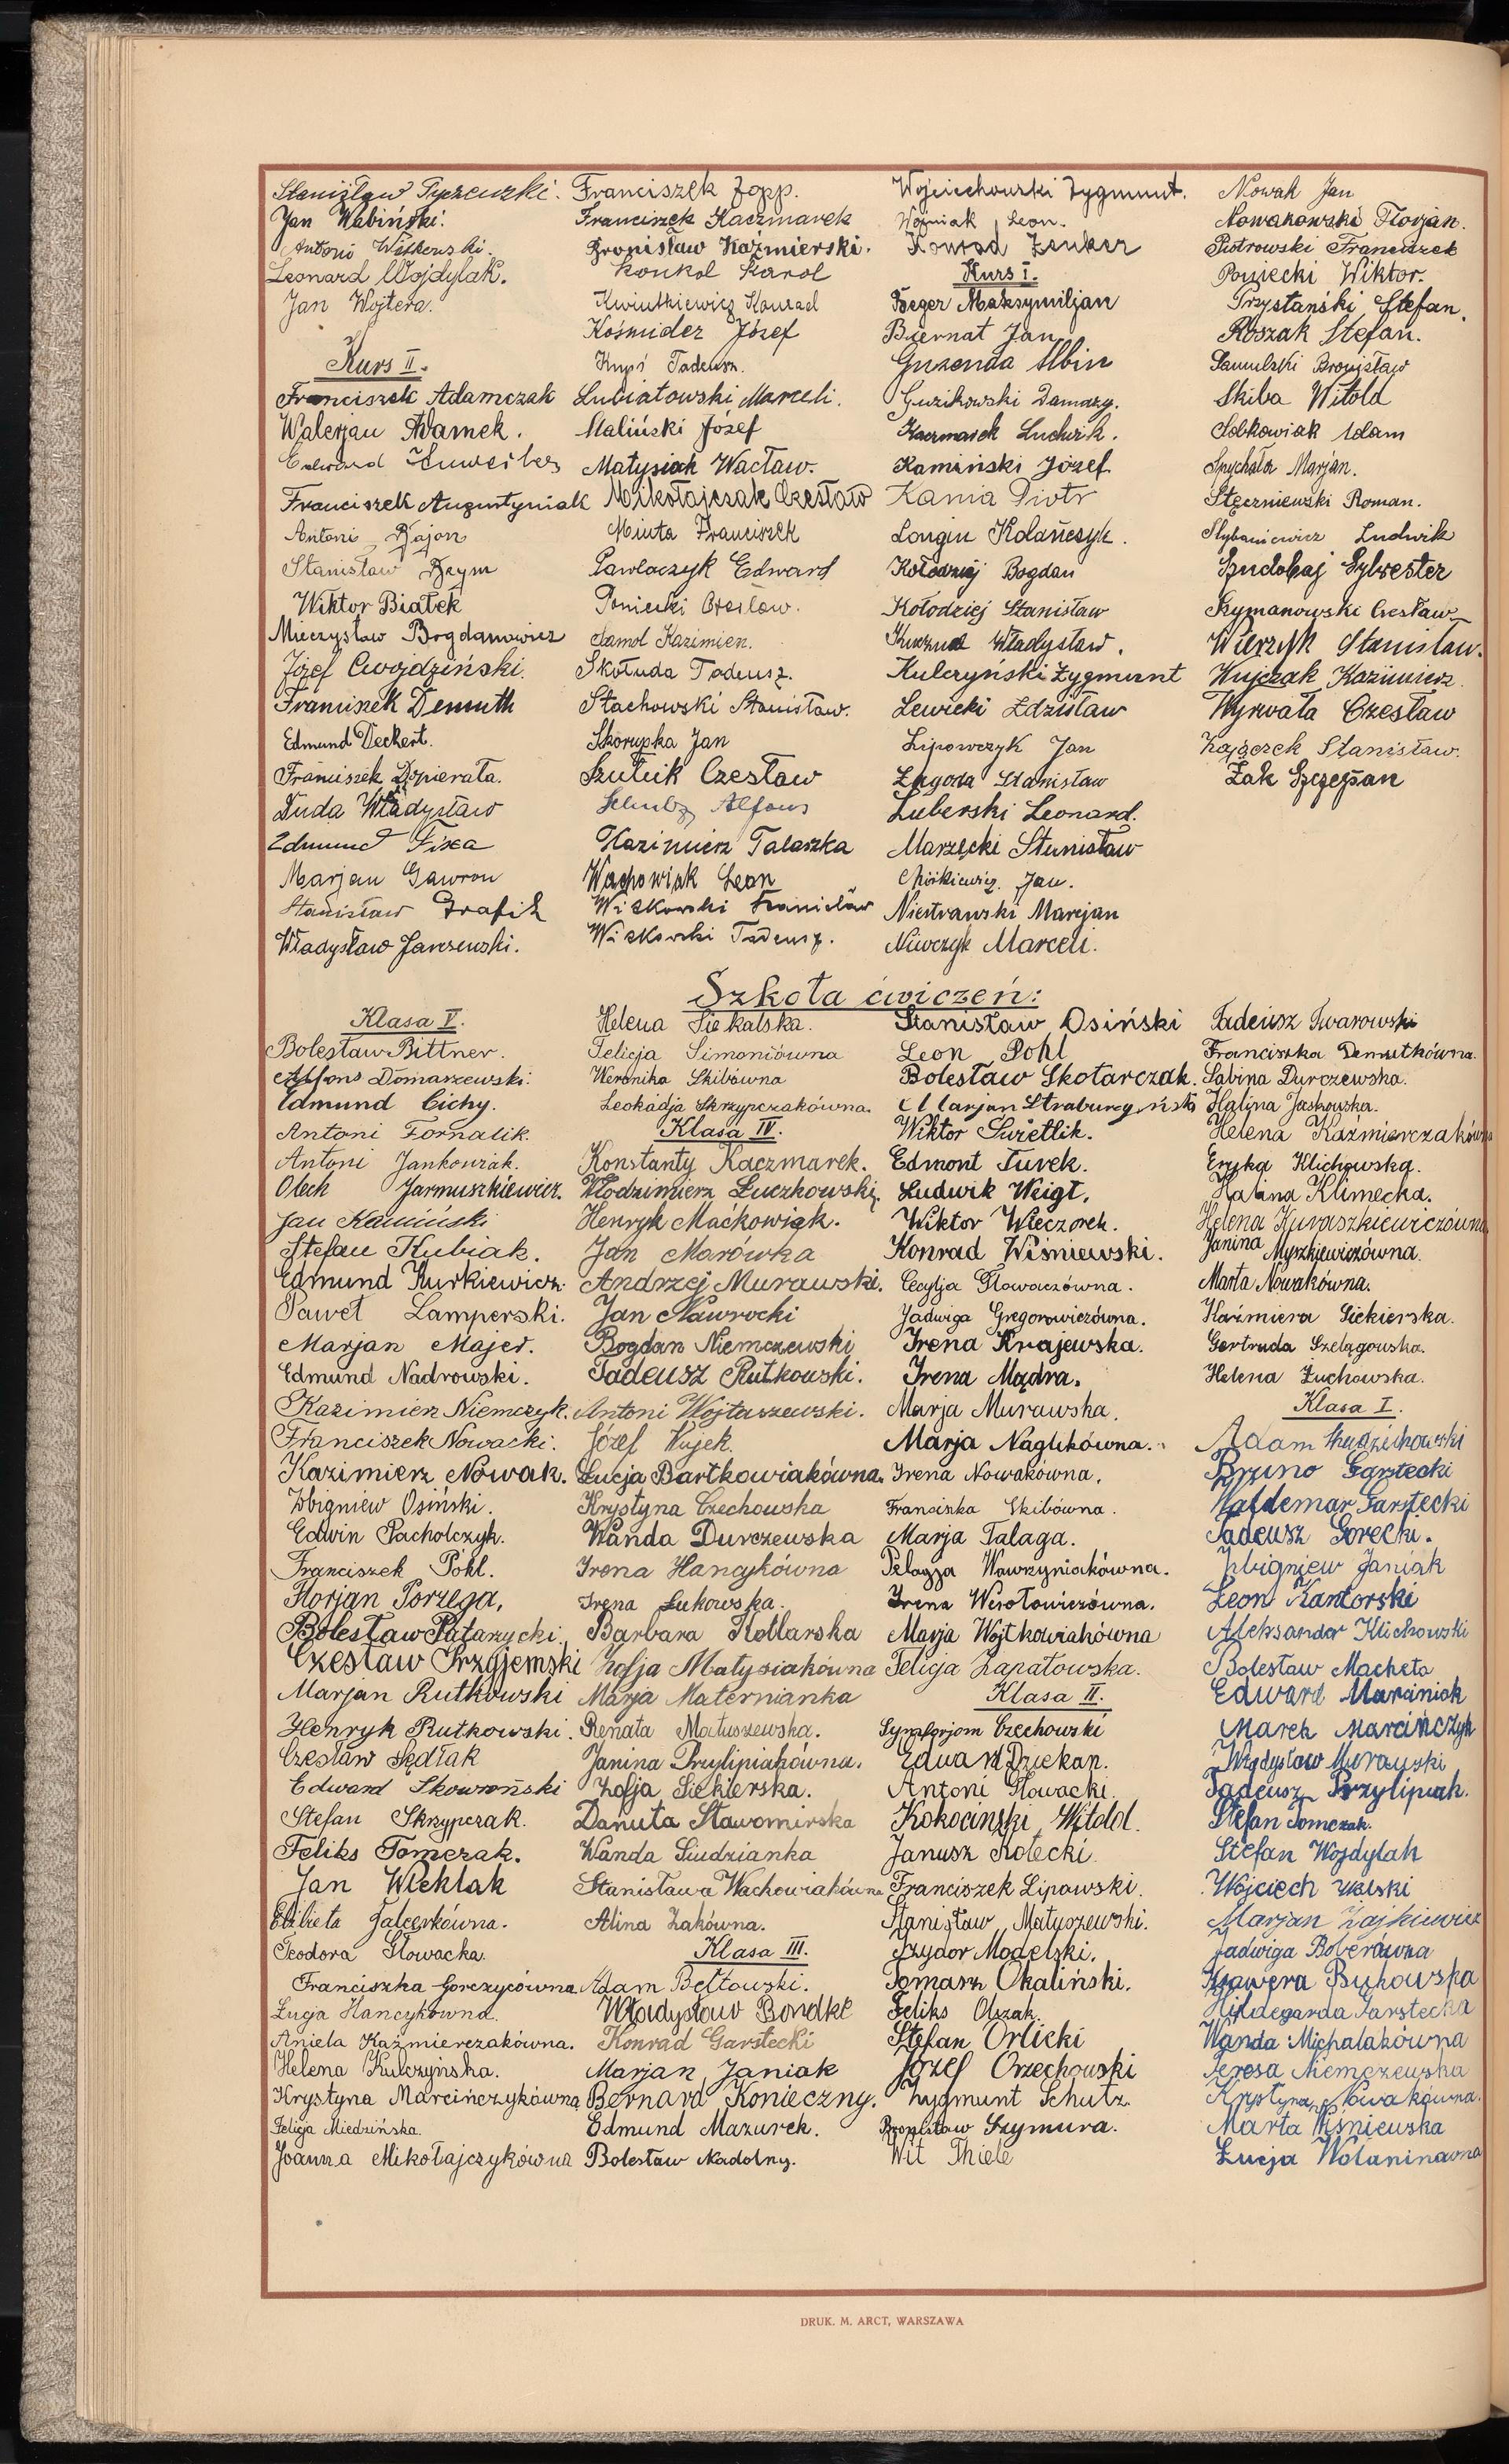 Stanisław Tyczewski.
Jan Wabiński.
Antoni Witkowski.
Leonard Wojdylak.
Jan Wojtera.
Kurs II.
Franciszek Adamczak
Walerjan Adamek.
Edward
Franciszek Augustyniak
Antoni Bajon
Stanisław Beym
Wiktor Białek
Mieczysław Bogdanowicz
Józef Cwojdziński.
Franciszek Demuth
Edmund Deckert.
Franciszek Dopierała.
Duda Władysław
Edmund Fixa
Marjan Gawron
Stanisław Grafik
Władysław Janszewski.
Franciszek Jopp.
Franciszek Kaczmarek
Bronisław Kaźmierski.
Konkol Karol
Kwiutkiewicz Konrad
Kośmider Józef
Kupś Tadeusz.
Lubiatowski Marceli.
Maliński Józef
Matysiak Wacław.
Mikołajczak Czesław
Minta Franciszek
Pawlaczyk Edward
Poniecki Czesław.
Samol Kazimierz.
Skołuda Tadeusz.
Stachowski Stanisław.
Skorupka Jan
Szulcik Czesław
Schulz Alfons
Kazimierz Talaszka
Wachowiak Leon
Witkowski Stanisław
Witkowski Tadeusz.
Wojciechowski Zygmunt.
Woźniak Leon.
Konrad Zenker
Kurs I.
Beger Maksymiljan
Biernat Jan
Guzenda Albin
Guzikowski Damazy.
Kaczmarek Ludwik.
Kamiński Józef
Kania Piotr
Longin Kolańczyk.
Kołodziej Bogdan
Kołodziej Stanisław
Władysław.
Kulczyński Zygmunt
Lewicki Zdzisław
Lipowczyk Jan
Łagoda Stanisław
Luberski Leonard.
Marzęcki Stanisław
Jan.
Niestrawski Marjan
Niwczyk Marceli.
Nowak Jan
Nowakowski Florjan.
Piotrowski Franciszek
Poniecki Wiktor.
Przystański Stefan.
Roszak Stefan.
Samulski Bronisław
Skiba Witold
Sobkowiak Adam
Spychała Marjan.
Stęczniewski Roman.
Stybaniewicz Ludwik
Szudobaj Sylwester
Szymanowski Czesław
Wierzyk Stanisław.
Wujczak Kazimierz
Wyrwała Czesław
Zajączek Stanisław.
Żak Szczepan
Szkoła ćwiczeń:
Klasa V.
Bolesław Bittner.
Alfons Domaszewski.
Edmund Cichy.
Antoni Fornalik.
Antoni Jankowiak.
Olech Jarmuszkiewicz.
Jan Kamiński
Stefan Kubiak.
Edmund Kurkiewicz.
Paweł Lamperski.
Marjan Majer.
Edmund Nadrowski.
Kazimierz Niemczyk.
Franciszek Nowacki.
Kazimierz Nowak.
Zbigniew Osiński.
Edwin Pacholczyk.
Franciszek Pohl.
Florjan Porzega.
Bolesław Patarycki.
Czesław Przyjemski
Marjan Rutkowski
Henryk Rutkowski.
Czesław Sędłak
Edward Skowroński
Stefan Skrzypczak.
Feliks Tomczak.
Jan Wleklak
Elżbieta Falcerkówna.
Teodora Głowacka.
Franciszka Gorczycówna
Łucja Hancykówna.
Aniela Kaźmierczakówna.
Helena Kulczyńska.
Krystyna Marcińczykówna
Felicja Miedzińska.
Joanna Mikołajczykówna
Helena Siekalska.
Felicja Simoniówna
Weronika Skibówna
Leokadja Skrzypczakówna.
Klasa IV.
Konstanty Kaczmarek.
Włodzimierz Łuczkowski.
Henryk Maćkowiak.
Jan Marówka
Andrzej Murawski.
Jan Nawrocki
Bogdan Niemczewski
Tadeusz Rutkowski.
Antoni Wojtaszewski.
Józef Wujek.
Łucja Bartkowiakówna.
Krystyna Czechowska
Wanda Durczewska
Irena Hancykówna
Irena Łukowska.
Barbara Kotlarska
Zofja Matysiakówna
Marja Maternianka
Renata Matuszewska.
Janina Przylipiakówna.
Zofja Siekierska.
Danuta Sławomirska
Wanda Siudzianka
Stanisława Wachowiakówna
Alina Żakówna.
Klasa III.
Adam Bełtowski.
Władysław Bondke
Konrad Garstecki
Marjan Janiak
Bernard Konieczny.
Edmund Mazurek.
Bolesław Nadolny.
Stanisław Osiński
Leon Pohl
Bolesław Skotarczak.
Marjan Straburzyński
Wiktor Świetlik.
Edmont Turek.
Ludwik Weigt.
Wiktor Wieczorek.
Konrad Wiśniewski.
Cecylja Głowaczówna.
Jadwiga Gregorowiczówna.
Irena Krajewska.
Irena Mądra.
Marja Murawska.
Marja Naglikówna.
Irena Nowakówna.
Franciszka Skibówna.
Marja Talaga.
Pelagja Wawrzyniakówna.
Irena Werołowiczówna.
Marja Wojtkowiakówna
Felicja Zapałowska.
Klasa II.
Symforjom Czechowski
Edward Dziekan.
Antoni Głowacki.
Kokociński Witold.
Janusz Kotecki
Franciszek Lipowski.
Stanisław Matuszewski.
Izydor Modelski.
Tomasz Okaliński.
Feliks Olszak.
Stefan Orlicki
Józef Orzechowski
Zygmunt Schutz
Bronisław Szymura.
Wit Thiele
Tadeusz Twarowski
Franciszka Demutkówna.
Sabina Durczewska.
Halina Jaskowska.
Helena Kaźmierczakówna
Eryka Klichowska.
Halina Klimecka.
Helena Kuraszkiewiczówna
Janina Myszkiewiczówna.
Marta Nowakówna.
Kaźmiera Siekierska.
Gertruda Szelągowska.
Helena Żuchowska.
Klasa I.
Adam
Bruno Garstecki
Waldemar Garstecki
Tadeusz Gorecki.
Zbigniew Janiak
Leon Kantorski
Aleksander Klichowski
Bolesław Macheta
Edward Marciniak
Marek Marcińczyk
Władysław Murawski
Tadeusz Przylipiak.
Stefan Tomczak.
Stefan Wojdylak
Wojciech Wolski
Marjan Zajkiewicz
Jadwiga Boberówna
Ksawera Bukowska
Hildegarda Garstecka
Wanda Michalakówna
Teresa Niemczewska
Krystyna Nowakówna.
Marta Wiśniewska
Łucja Wołaninówna
DRUK. M. ARCT, WARSZAWA